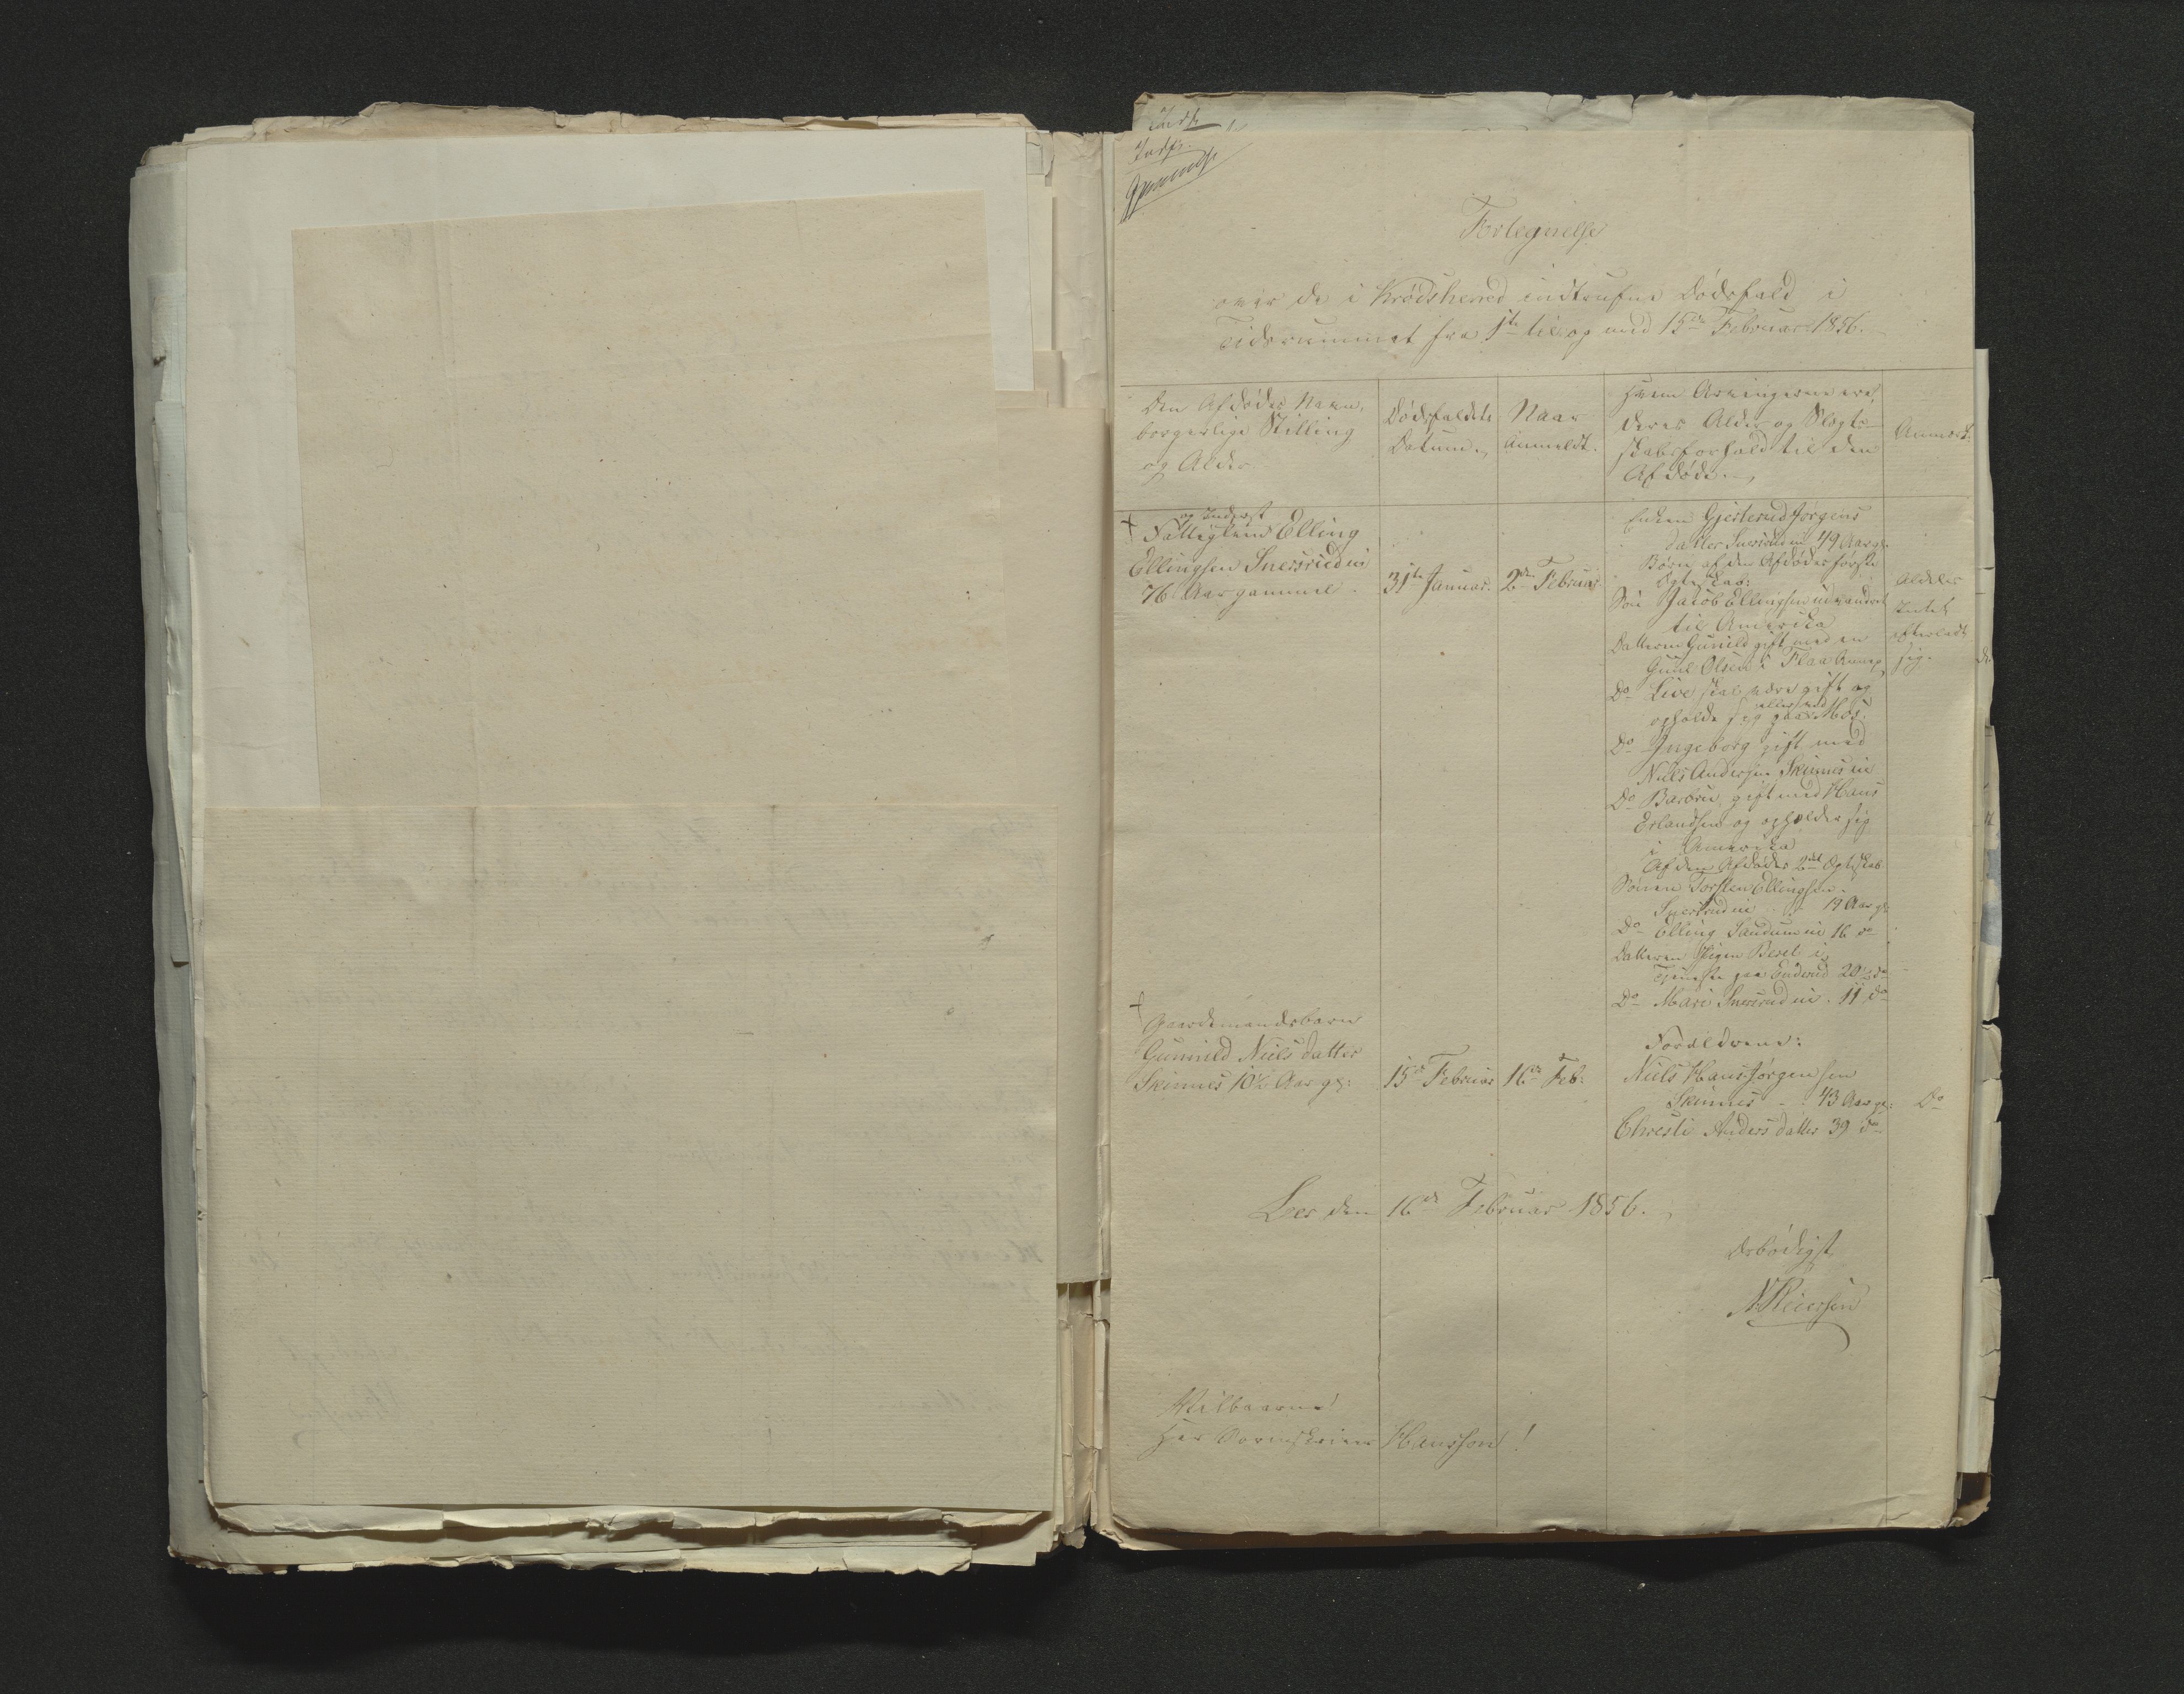 Indf.
Indf.
Fortegnelse
over de i Krødsherred indtrufne Dødsfald i
Tidsrummet fra 1ste til og med 15de Februar 1856.
Den Afdødes Navn,
borgerlige Stilling
og Alder
Dødsfaldets
Datum.
Naar
anmeldt.
Hvem Arvingerne ere,
deres Alder og Slægt-
skabsforhold til den
Afdøde.
Anmærk.
og Inderst
† Fattiglem Elling
Ellingsen Snersrudei
76 Aar gammel.
31te Januar.
2den Februar
Enken Gjertrud Jørgens
datter Snersrudei 49 Aar gl.
Børn af den Afdødes første
Ægteskab:
Søn Jacob Ellingsen udvandret
til Amerika
Datteren Gunild gift med en
Guul Olsen i Flaa Annex
Do Live skal være gift og
opholde sig paa eller ved Mos.
Do Ingeborg gift med
Niels Andersen Skinnesei
Do Barbro gift med Hans
Erlandsen og opholder sig
i Amerika
Af den Afdødes 2det Ægteskab
Sønnen Torsten Ellingsen
Snersrudei 19 Aar gl.
Do Elling Sandumei 16 do
Datteren Pigen Beret i
Tjeneste paa Enderud 20 do
Do Mari Snersrudei 11 do
Aldeles
Intet
efterladt
sig.
†
Gaardmandsbarn
Gunnild Niels datter
Skinnes 10½ Aar gl:
15de Februar
16de Feb:
Forældrene:
Niels Hans Jørgensen
Skinnes - 43 Aar gl:
Christi Anders datter 39 do
Do
Lee den 16de Februar 1856.
Ærbødigst
N. Reiersen
Velbaarne
Herr Sorenskriver Hansson!